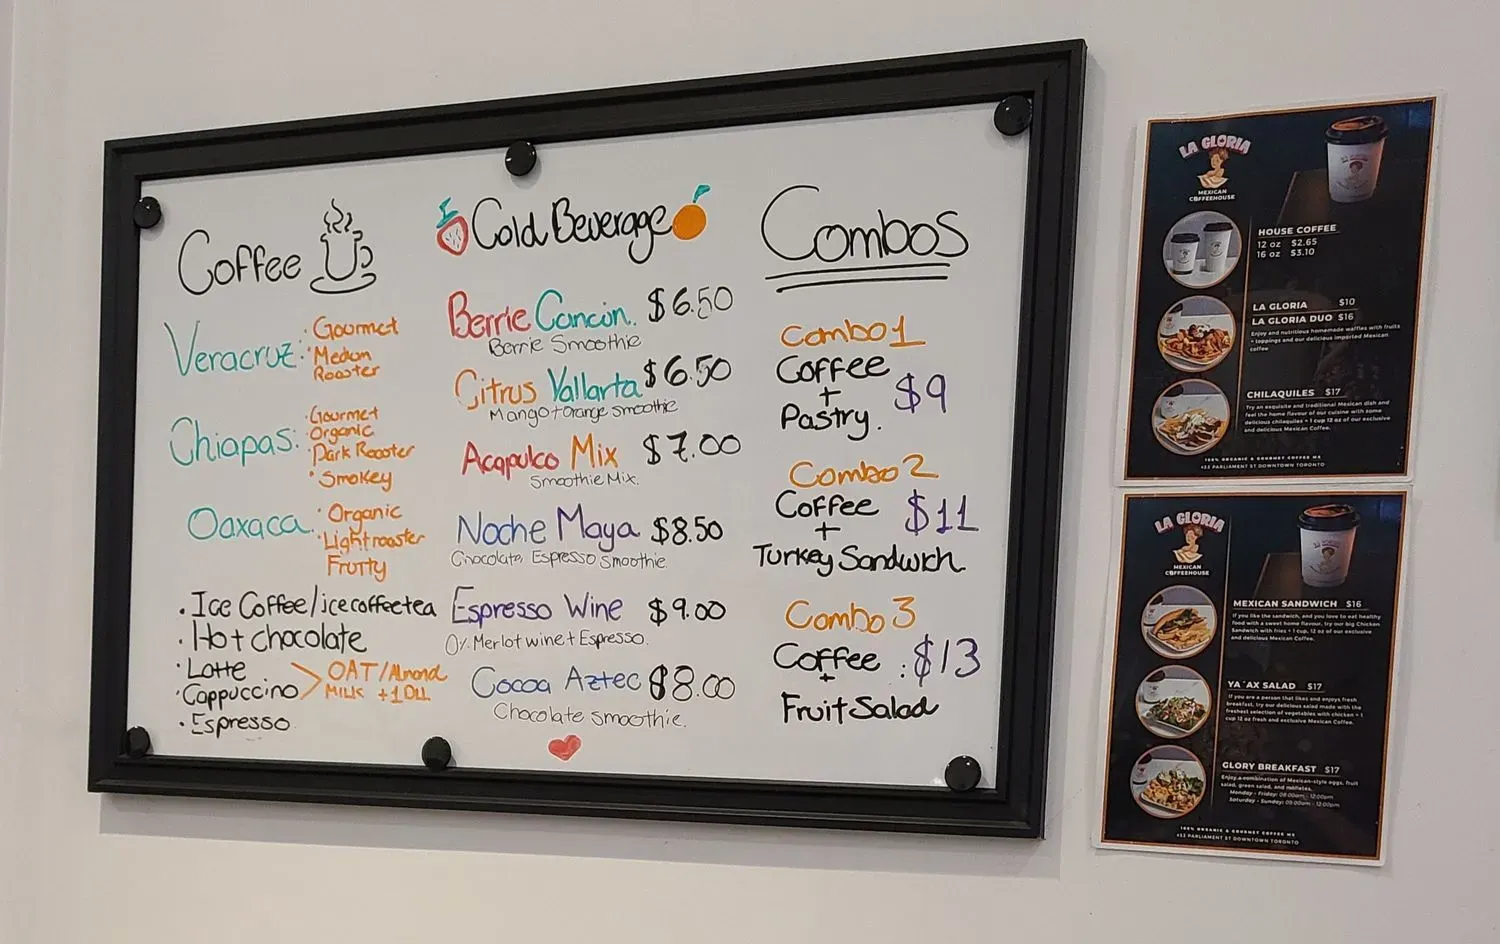 Coffee
Veracruz:
· Gourmet
· Medium
Roaster
Chiapas:
· Gourmet
· Organic
· Dark Roaster
· Smokey
Oaxaca.
· Organic
· Light roaster
Frutty
· Ice Coffee/ice coffee tea
· Hot chocolate
· Latte
· Cappuccino
OAT/Almond
MILK +1 DLL
· Espresso
Cold Beverage
Berrie Cancún. $6.50
Berrie Smoothie
Citrus Vallarta $6.50
Mango + Orange smoothie
Acapulco Mix $7.00
Smoothie Mix.
Noche Maya $8.50
Chocolate, Espresso Smoothie
Espresso Wine $9.00
0% Merlot wine + Espresso.
Cocoa Aztec $8.00
Chocolate smoothie.
Combos
Combo 1
Coffee
+
Pastry.
$9
Combo 2
Coffee
+
Turkey Sandwich.
$11
Combo 3
Coffee
+
Fruit Salad
$13
LA GLORIA
MEXICAN
COFFEEHOUSE
HOUSE COFFEE
12 oz $2.65
16 oz $3.10
LA GLORIA $10
LA GLORIA DUO $16
Enjoy and nutritious homemade waffles with fruits
+ toppings and our delicious imported Mexican
coffee
CHILAQUILES $17
Try an exquisite and traditional Mexican dish and
feel the home flavour of our cuisine with some
delicious chilaquiles + 1 cup 12 oz of our exclusive
and delicious Mexican Coffee.
100% ORGANIC & GOURMET COFFEE MX
433 PARLIAMENT ST DOWNTOWN TORONTO
LA GLORIA
MEXICAN
COFFEEHOUSE
MEXICAN SANDWICH $16
If you like the sandwich, and you love to eat healthy
food with a sweet home flavour, try our big Chicken
Sandwich with fries + 1 cup, 12 oz of our exclusive
and delicious Mexican Coffee.
YA´AX SALAD $17
If you are a person that likes and enjoys fresh
breakfast, try our delicious salad made with the
freshest selection of vegetables with chicken + 1
cup 12 oz fresh and exclusive Mexican Coffee.
GLORY BREAKFAST $17
Enjoy a combination of Mexican-style eggs, fruit
salad, green salad, and
Monday - Friday: 08:00am - 12:00pm
Saturday - Sunday: 09:00am - 12:00pm
100% ORGANIC & GOURMET COFFEE MX
433 PARLIAMENT ST DOWNTOWN TORONTO